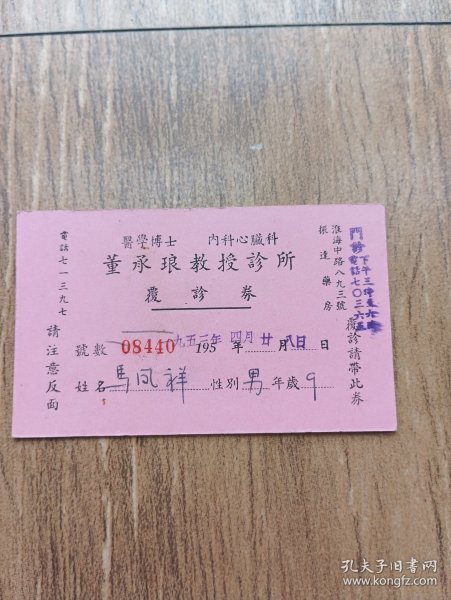 醫學博士 內科心臟科
董承琅教授診所
覆診券
號數 08440 195 年 月 日
九五三年 四月 廿八日
姓名 馬風祥 性別 男 年歲 9
電話七一三九七 請注意反面
淮海中路八九三號
振達藥房
覆診請帶此券
門診下午三時至六時
電話七〇三六五
孔夫子旧书网
www.kongfz.com